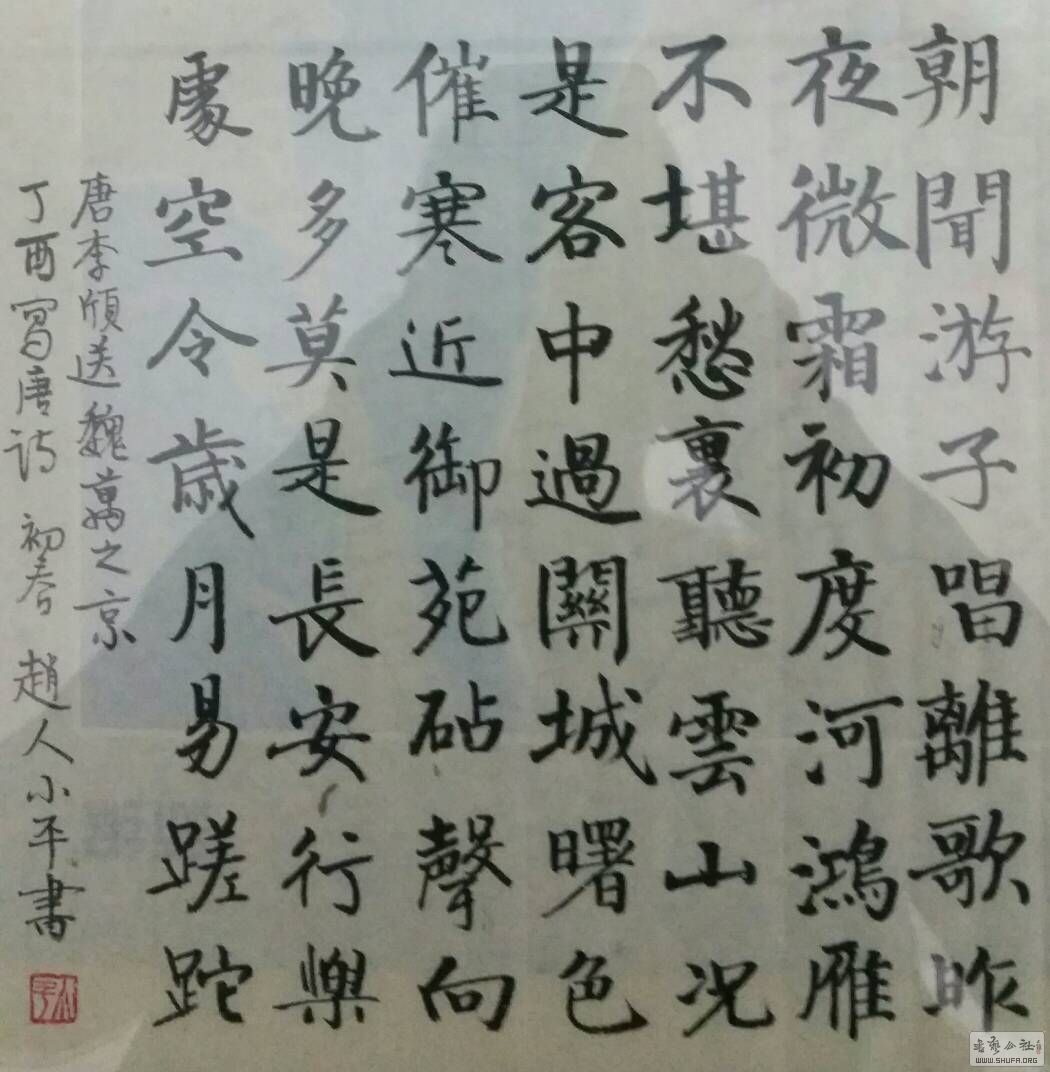 朝聞游子唱離歌昨
夜微霜初度河鴻雁
不堪愁裏聽雲山況
是客中過關城曙色
催寒近御苑砧聲向
晚多莫是長安行樂
處空令歲月易蹉跎
唐李頎送魏萬之京
丁酉寫唐诗 初春 趙人小平書
小平
書藝公社
WWW.SHUFA.ORG